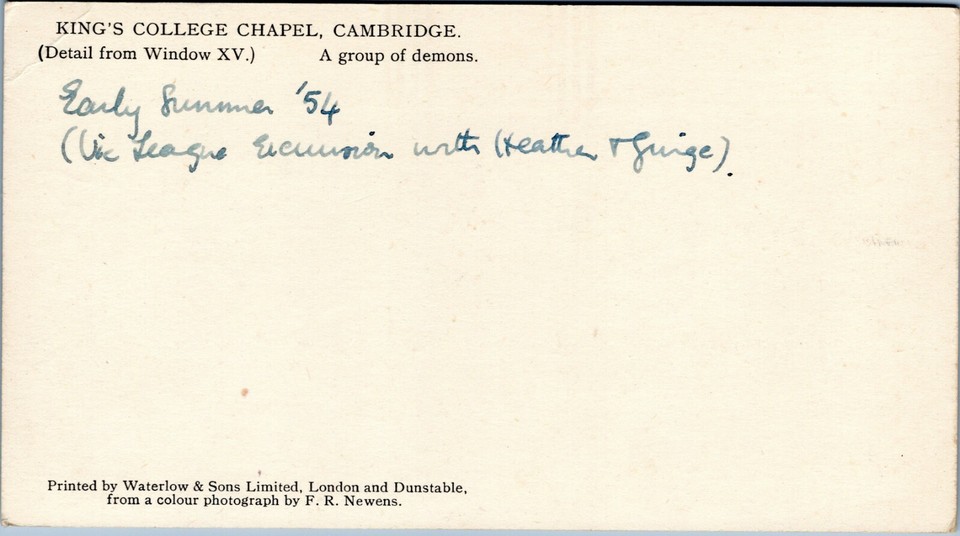 KING'S COLLEGE CHAPEL, CAMBRIDGE.
(Detail from Window XV.) A group of demons.
Early Summer '54
(Vic League Excursion with Heather & Ginge).
Printed by Waterlow & Sons Limited, London and Dunstable,
from a colour photograph by F. R. Newens.